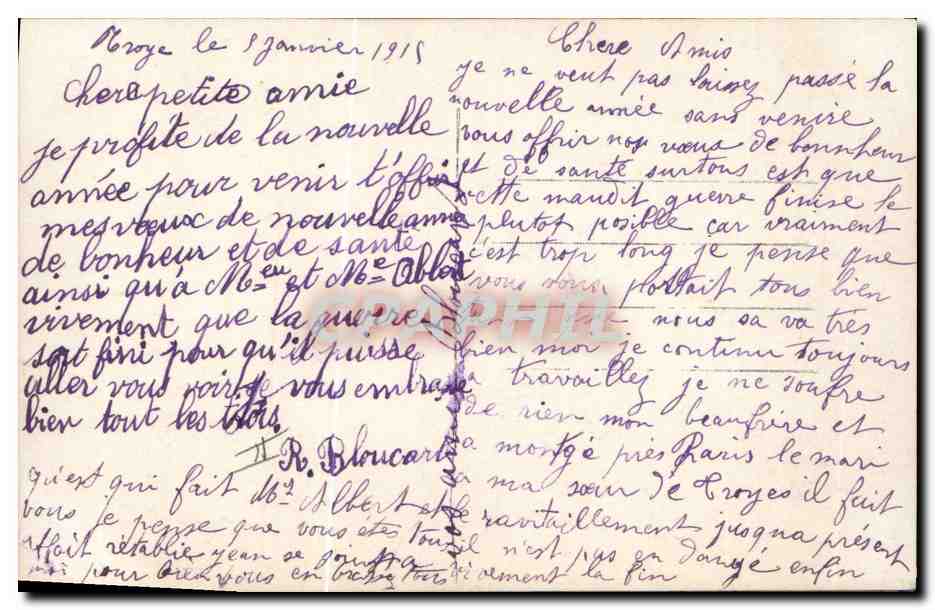 Troye le 5 Janvier 1915
Chere petite amie
je profite de la nouvelle
année pour venir t'offrir
mes vœux de nouvelle anne
de bonheur et de santé
ainsi qu'a Meu et Me Albert
vivement que la guerre
soit fini pour qu'il puisse
aller vous voir je vous embrasse
bien tout les trois.
R. Bloucard
II
qu'est qui fait Mr Albert et
vous je pense que vous etes tous
affait rétablie jean se joint a
moi pour bien vous embrasser tous
Chere Amis
je ne veut pas laissez passé la
nouvelle année sans venire
vous offrir nos vœus de bonnheur
et de santé surtous est que
cette maudit guerre finise le
plutot posible car vraiment
c'est trop long je pense que
vous vous portait tous bien
nous sa va trés
bien moi je continu toujours
a travaillez je ne soufre
de rien mon beaufrére et
a montgé prés Paris le mari
a ma sœur de Troyes il fait
le ravitaillement jusqua présent
il n'est pas en dangé enfin
vivement la fin
vos amies Bloucard
CPAPHIL